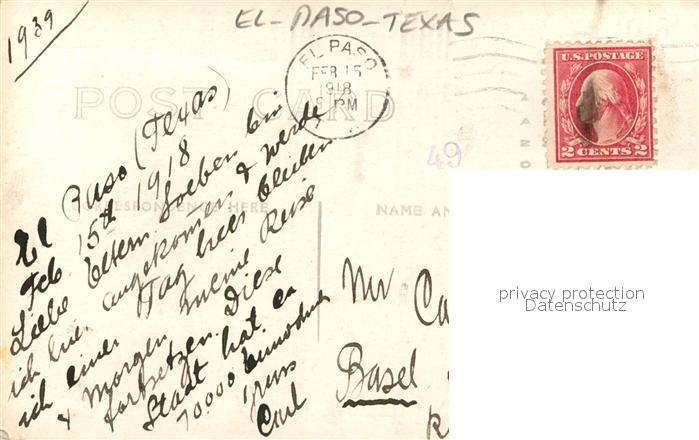 1939
EL-PASO-TEXAS
EL PASO
FEB 15
1918
PM
U.S. POSTAGE
2 CENTS 2
POST CARD
49
CORRESPONDENCE HERE
NAME AN
El Paso (Texas)
Feb. 15th 1918
Liebe Eltern. Soeben bin
ich hier angekommen & werde
ich einen Tag hier bleiben
& morgen meine Reise
fortsetzen. Diese
Stadt hat ca
70.000 Einwohner
Gruss
Carl
Mr Ca
Basel
privacy protection
Datenschutz